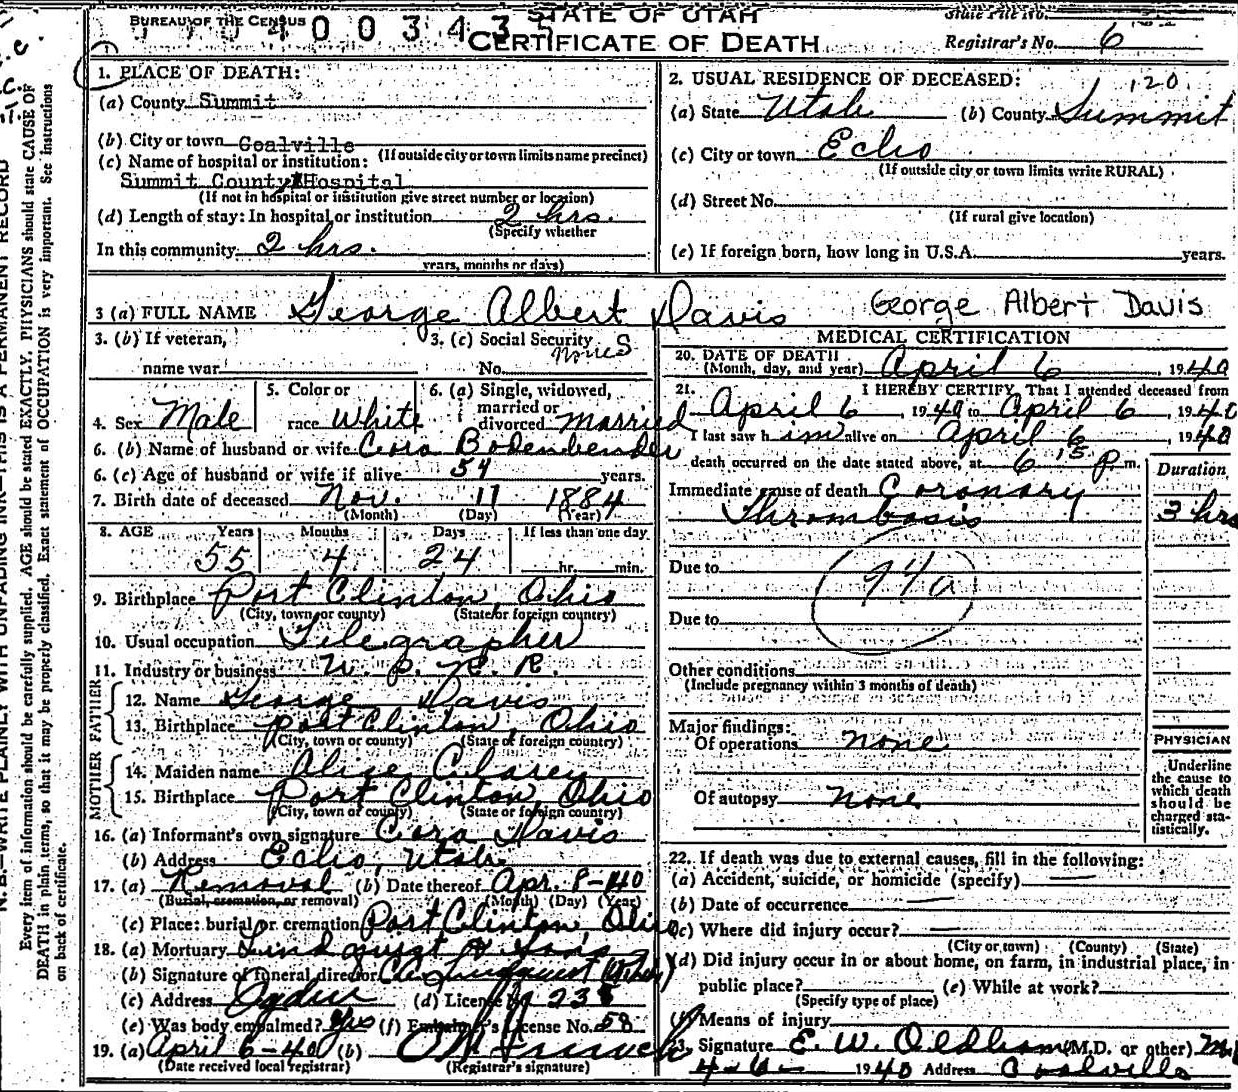 BUREAU OF THE CENSUS
STATE OF UTAH
CERTIFICATE OF DEATH
State File No.
Registrar's No. 6
1. PLACE OF DEATH:
(a) County Summit
(b) City or town Coalville
(If outside city or town limits name precinct)
(c) Name of hospital or institution:
Summit County Hospital
(If not in hospital or institution give street number or location)
(d) Length of stay: In hospital or institution 2 hrs.
(Specify whether
In this community 2 hrs.
years, months or days)
2. USUAL RESIDENCE OF DECEASED: 120
(a) State Utah (b) County Summit
(c) City or town Echo
(If outside city or town limits write RURAL)
(d) Street No.
(If rural give location)
(e) If foreign born, how long in U.S.A. years.
3 (a) FULL NAME George Albert Davis George Albert Davis
3. (b) If veteran,
name war
3. (c) Social Security
No.
4. Sex Male
5. Color or
race White
6. (a) Single, widowed,
married or
divorced Married
6. (b) Name of husband or wife Cora Bodenbender
6. (c) Age of husband or wife if alive 54 years.
7. Birth date of deceased Nov. 11 1884
(Month) (Day) (Year)
8. AGE Years Months Days If less than one day
55 4 24 hr. min.
9. Birthplace Port Clinton, Ohio
(City, town or county) (State or foreign country)
10. Usual occupation Telegrapher
11. Industry or business U. P. R. R.
FATHER
12. Name George Davis
13. Birthplace Port Clinton, Ohio
(City, town or county) (State or foreign country)
MOTHER
14. Maiden name Alice
15. Birthplace Port Clinton, Ohio
(City, town or county) (State or foreign country)
16. (a) Informant's own signature Cora Davis
(b) Address Echo, Utah.
17. (a) Removal (b) Date thereof Apr. 8-40
(Burial, cremation, or removal) (Month) (Day) (Year)
(c) Place: burial or cremation Port Clinton Ohio
18. (a) Mortuary Lindquist & Sons
(b) Signature of funeral director
(c) Address Ogden (d) License No 238
(e) Was body embalmed? Yes (f) Embalmer's License No. 58
19. (a) April 6-40 (b)
(Date received local registrar) (Registrar's signature)
MEDICAL CERTIFICATION
20. DATE OF DEATH
(Month, day, and year) April 6, 1940
21. I HEREBY CERTIFY, That I attended deceased from
April 6, 1940 to April 6, 1940
I last saw him alive on April 6, 1940
death occurred on the date stated above, at 6 15 P. m.
Duration
Immediate cause of death Coronary
Thrombosis 3 hrs
Due to 94a
Due to
Other conditions
(Include pregnancy within 3 months of death)
Major findings:
Of operations none
Of autopsy none
PHYSICIAN
Underline
the cause to
which death
should be
charged sta-
tistically.
22. If death was due to external causes, fill in the following:
(a) Accident, suicide, or homicide (specify)
(b) Date of occurrence
(c) Where did injury occur?
(City or town) (County) (State)
(d) Did injury occur in or about home, on farm, in industrial place, in
public place? (e) While at work?
(Specify type of place)
(f) Means of injury
23. Signature E. W. Oldham (M.D. or other) M.
4-6- 1940 Address Coalville
N. B.—WRITE PLAINLY WITH UNFADING INK—THIS IS A PERMANENT RECORD
Every item of information should be carefully supplied. AGE should be stated EXACTLY. PHYSICIANS should state CAUSE OF
DEATH in plain terms, so that it may be properly classified. Exact statement of OCCUPATION is very important. See instructions
on back of certificate.